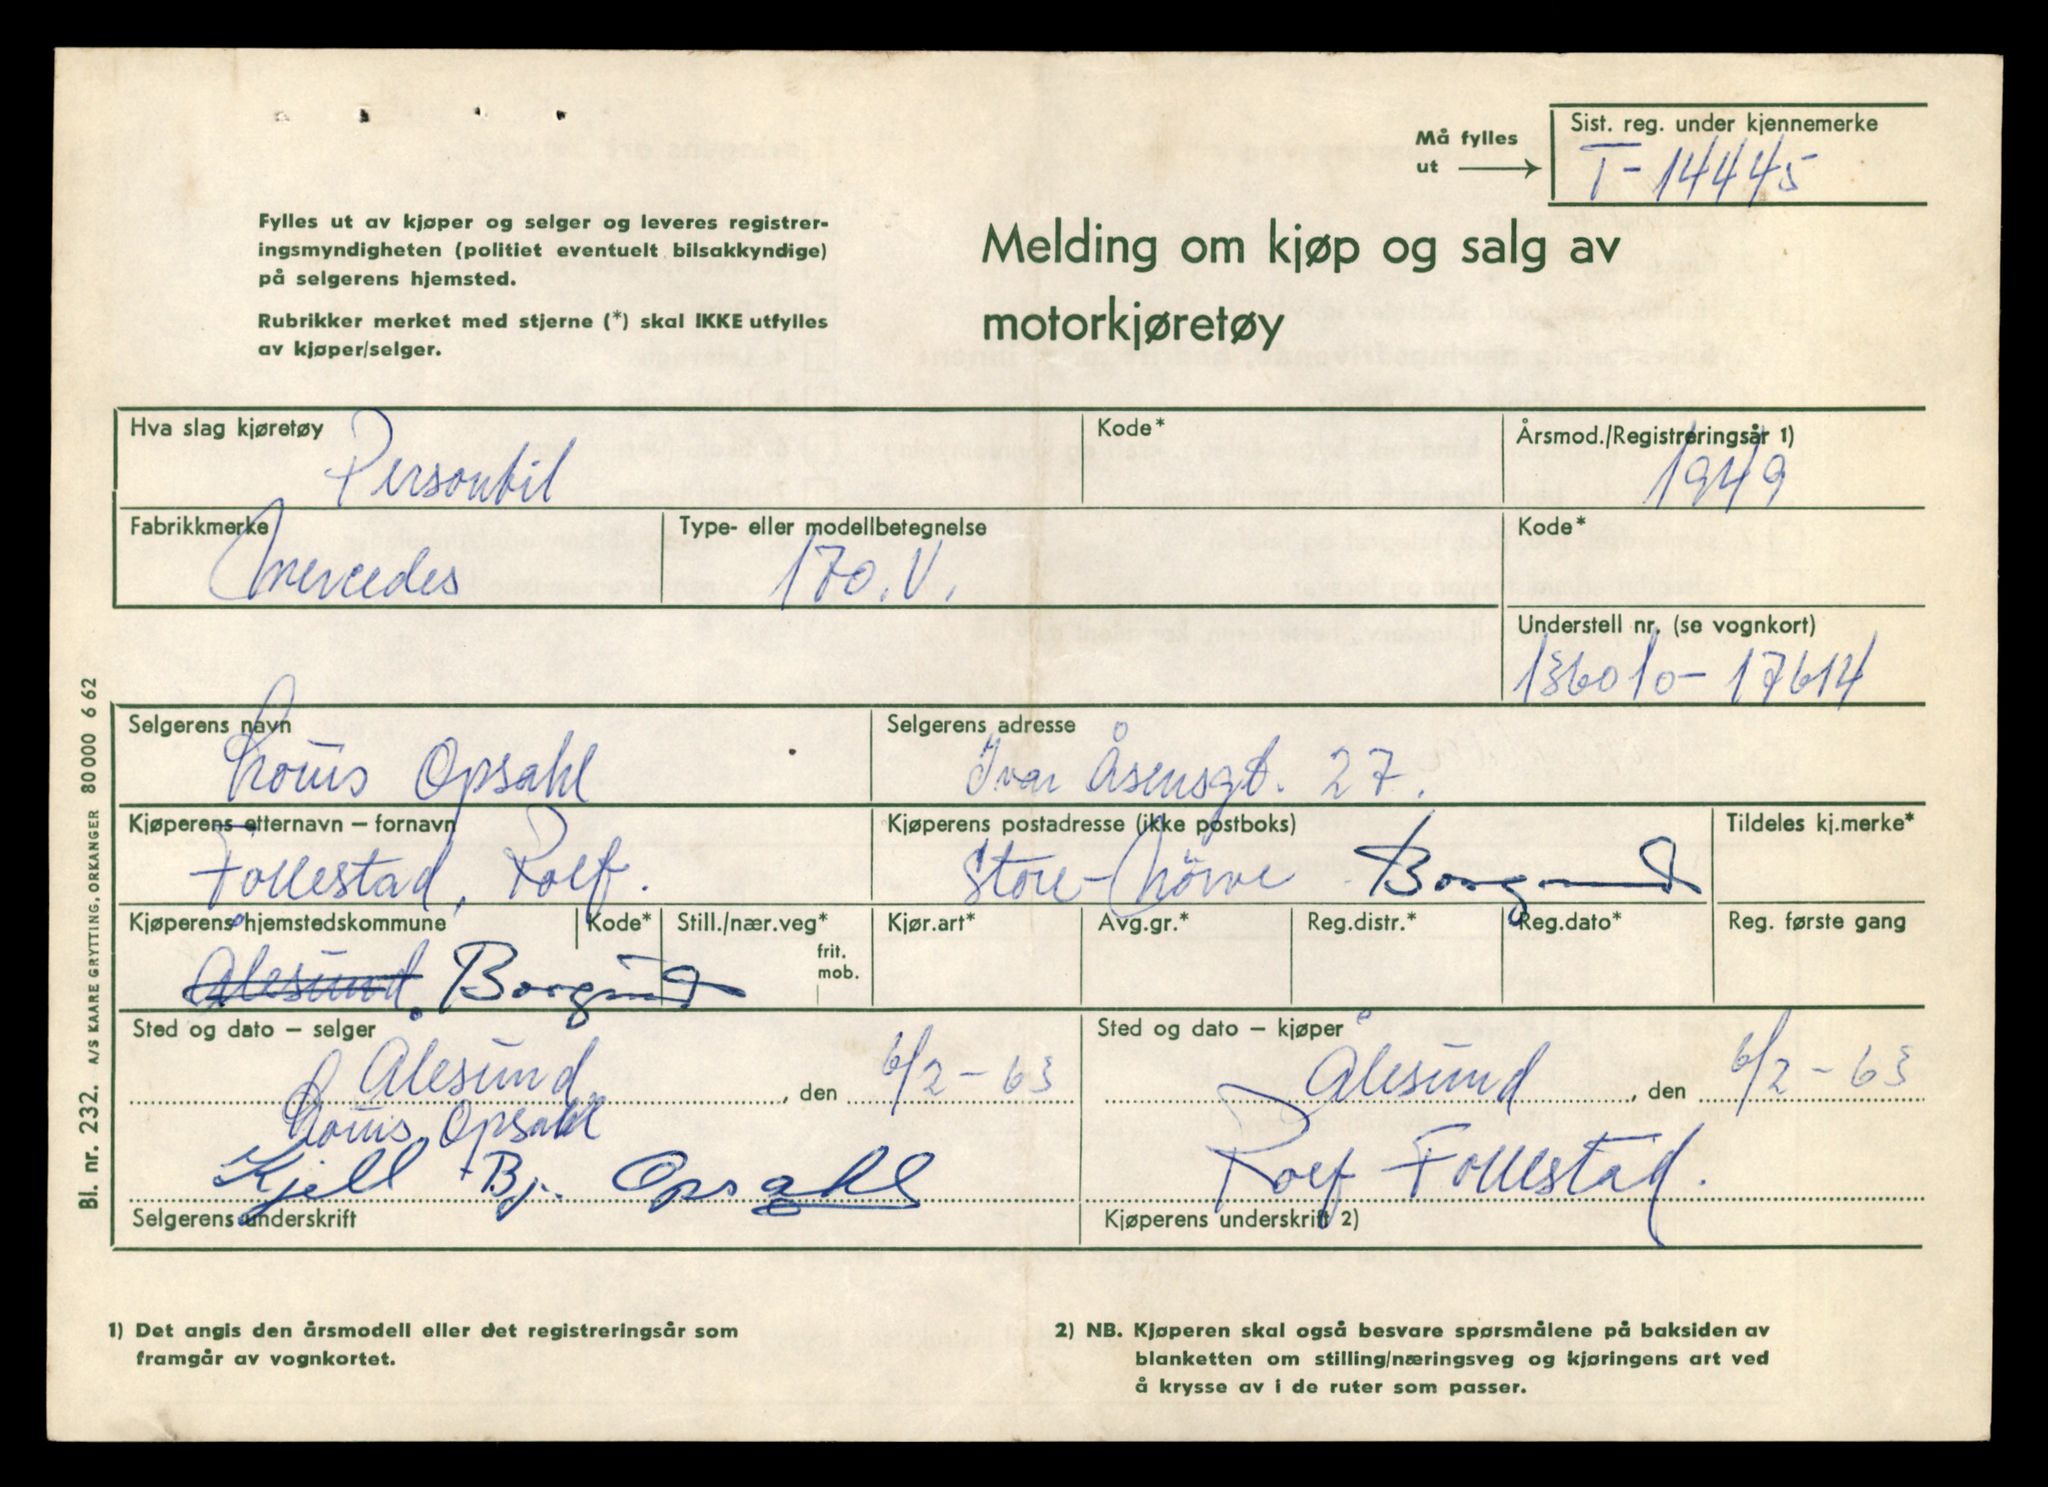 Må fylles ut →
Sist. reg. under kjennemerke
T-14445
Fylles ut av kjøper og selger og leveres registrer-
ingsmyndigheten (politiet eventuelt bilsakkyndige)
på selgerens hjemsted.
Rubrikker merket med stjerne (*) skal IKKE utfylles
av kjøper/selger.
Melding om kjøp og salg av
motorkjøretøy
Hva slag kjøretøy
Personbil
Kode*
Årsmod./Registreringsår 1)
1949
Fabrikkmerke
Mercedes
Type- eller modellbetegnelse
170.V.
Kode*
Understell nr. (se vognkort)
136010-17614
Selgerens navn
Louis Opsahl
Selgerens adresse
Ivar Åsensgt. 27.
Kjøperens etternavn – fornavn
Follestad, Rolf.
Kjøperens postadresse (ikke postboks)
Store-Nörve Borgund
Tildeles kj.merke*
Kjøperens hjemstedskommune
Ålesund. Borgund
Kode*
Still./nær.veg*
frit.
mob.
Kjør.art*
Avg.gr.*
Reg.distr.*
Reg.dato*
Reg. første gang
Sted og dato – selger
Ålesund, den 6/2-63
Louis Opsahl
Kjell Bj. Opsahl
Selgerens underskrift
Sted og dato – kjøper
Ålesund, den 6/2-63
Rolf Follestad.
Kjøperens underskrift 2)
1) Det angis den årsmodell eller det registreringsår som
framgår av vognkortet.
2) NB. Kjøperen skal også besvare spørsmålene på baksiden av
blanketten om stilling/næringsveg og kjøringens art ved
å krysse av i de ruter som passer.
Bl. nr. 232. A/S KAARE GRYTTING, ORKANGER 80000 6 62